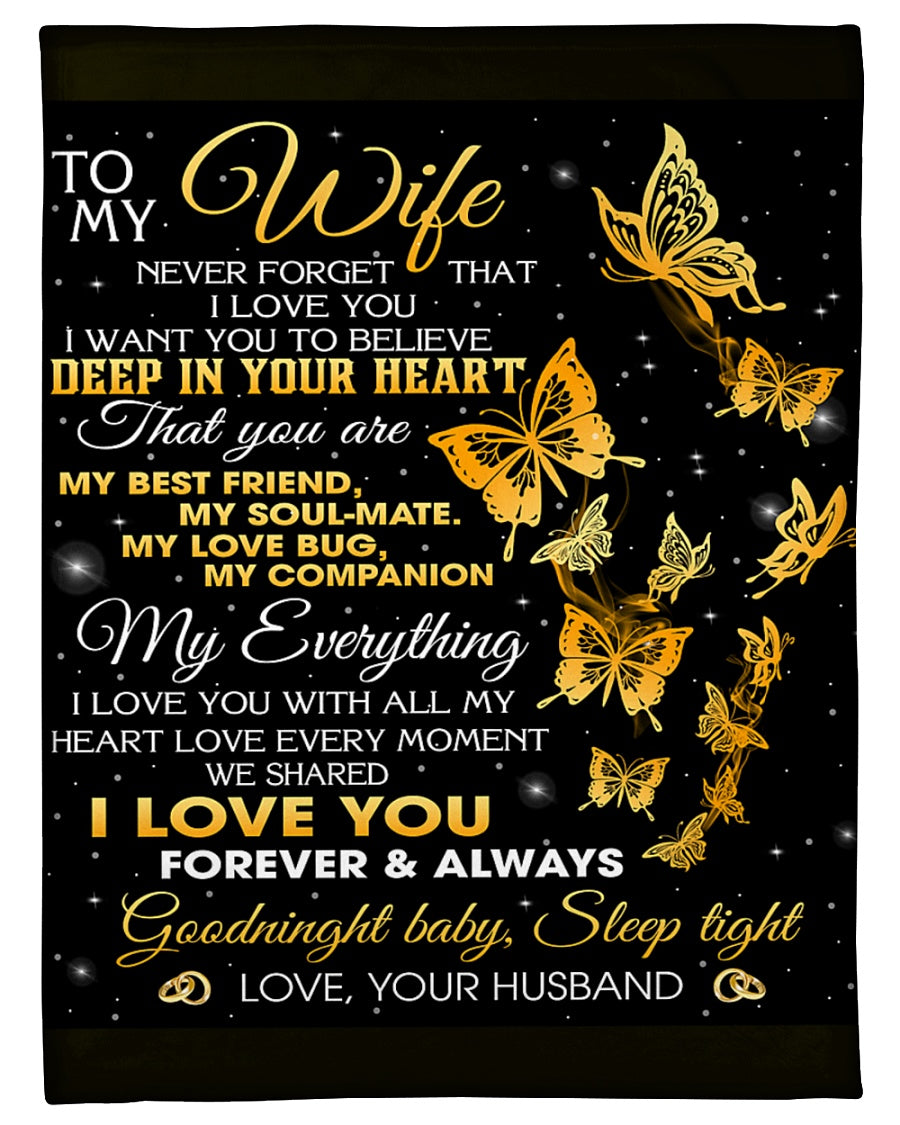 TO MY Wife
NEVER FORGET THAT
I LOVE YOU
I WANT YOU TO BELIEVE
DEEP IN YOUR HEART
That you are
MY BEST FRIEND,
MY SOUL-MATE.
MY LOVE BUG,
MY COMPANION
My Everything
I LOVE YOU WITH ALL MY
HEART LOVE EVERY MOMENT
WE SHARED
I LOVE YOU
FOREVER & ALWAYS
Goodninght baby, Sleep tight
LOVE, YOUR HUSBAND